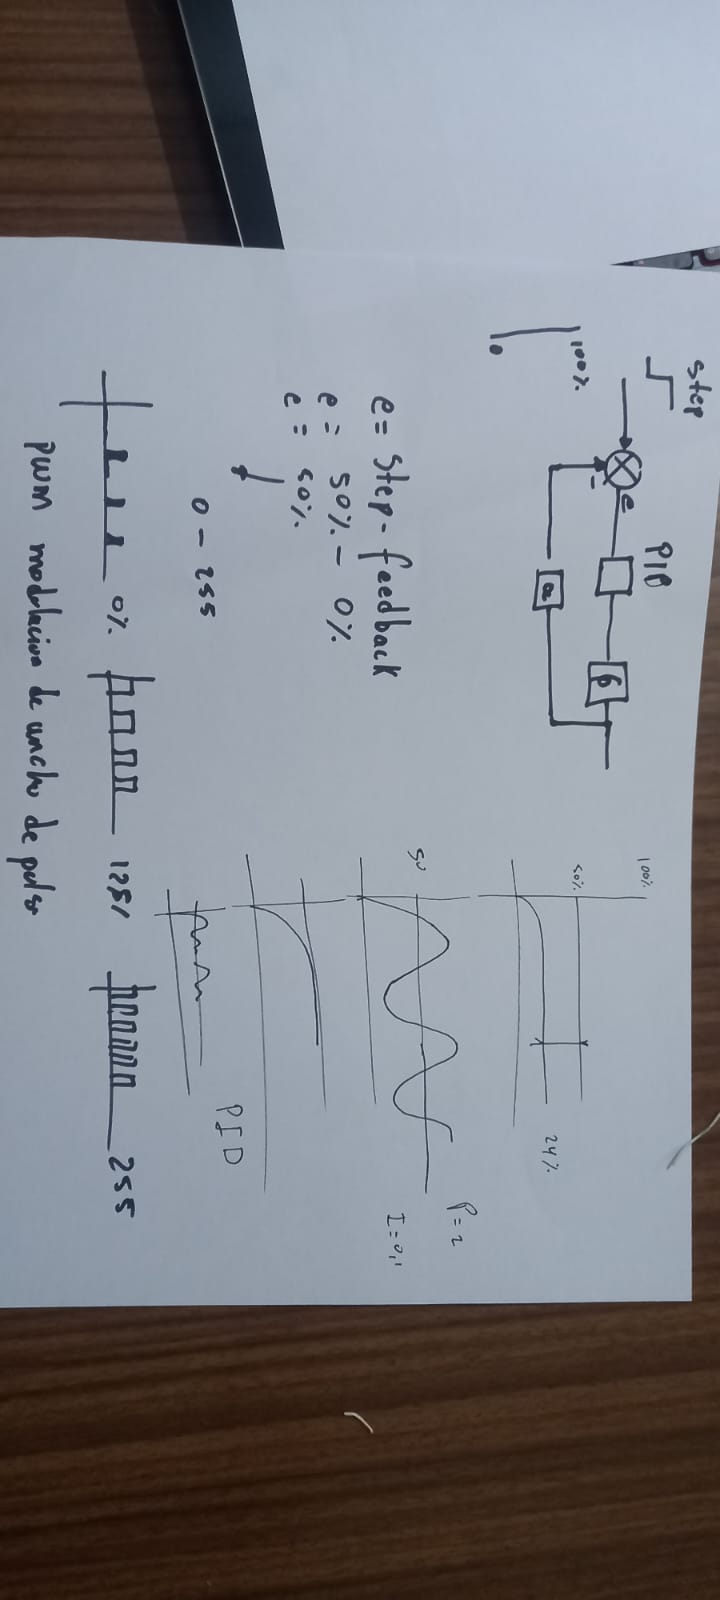 Step
PID
e
-
100%
0
a
6
e = Step - feedback
e = 50% - 0%
e = 50%
0 - 255
0%
125%
255
PWM modulacion de ancho de pulso
100%
50%
24%
50
P=2
I=0,1
PID